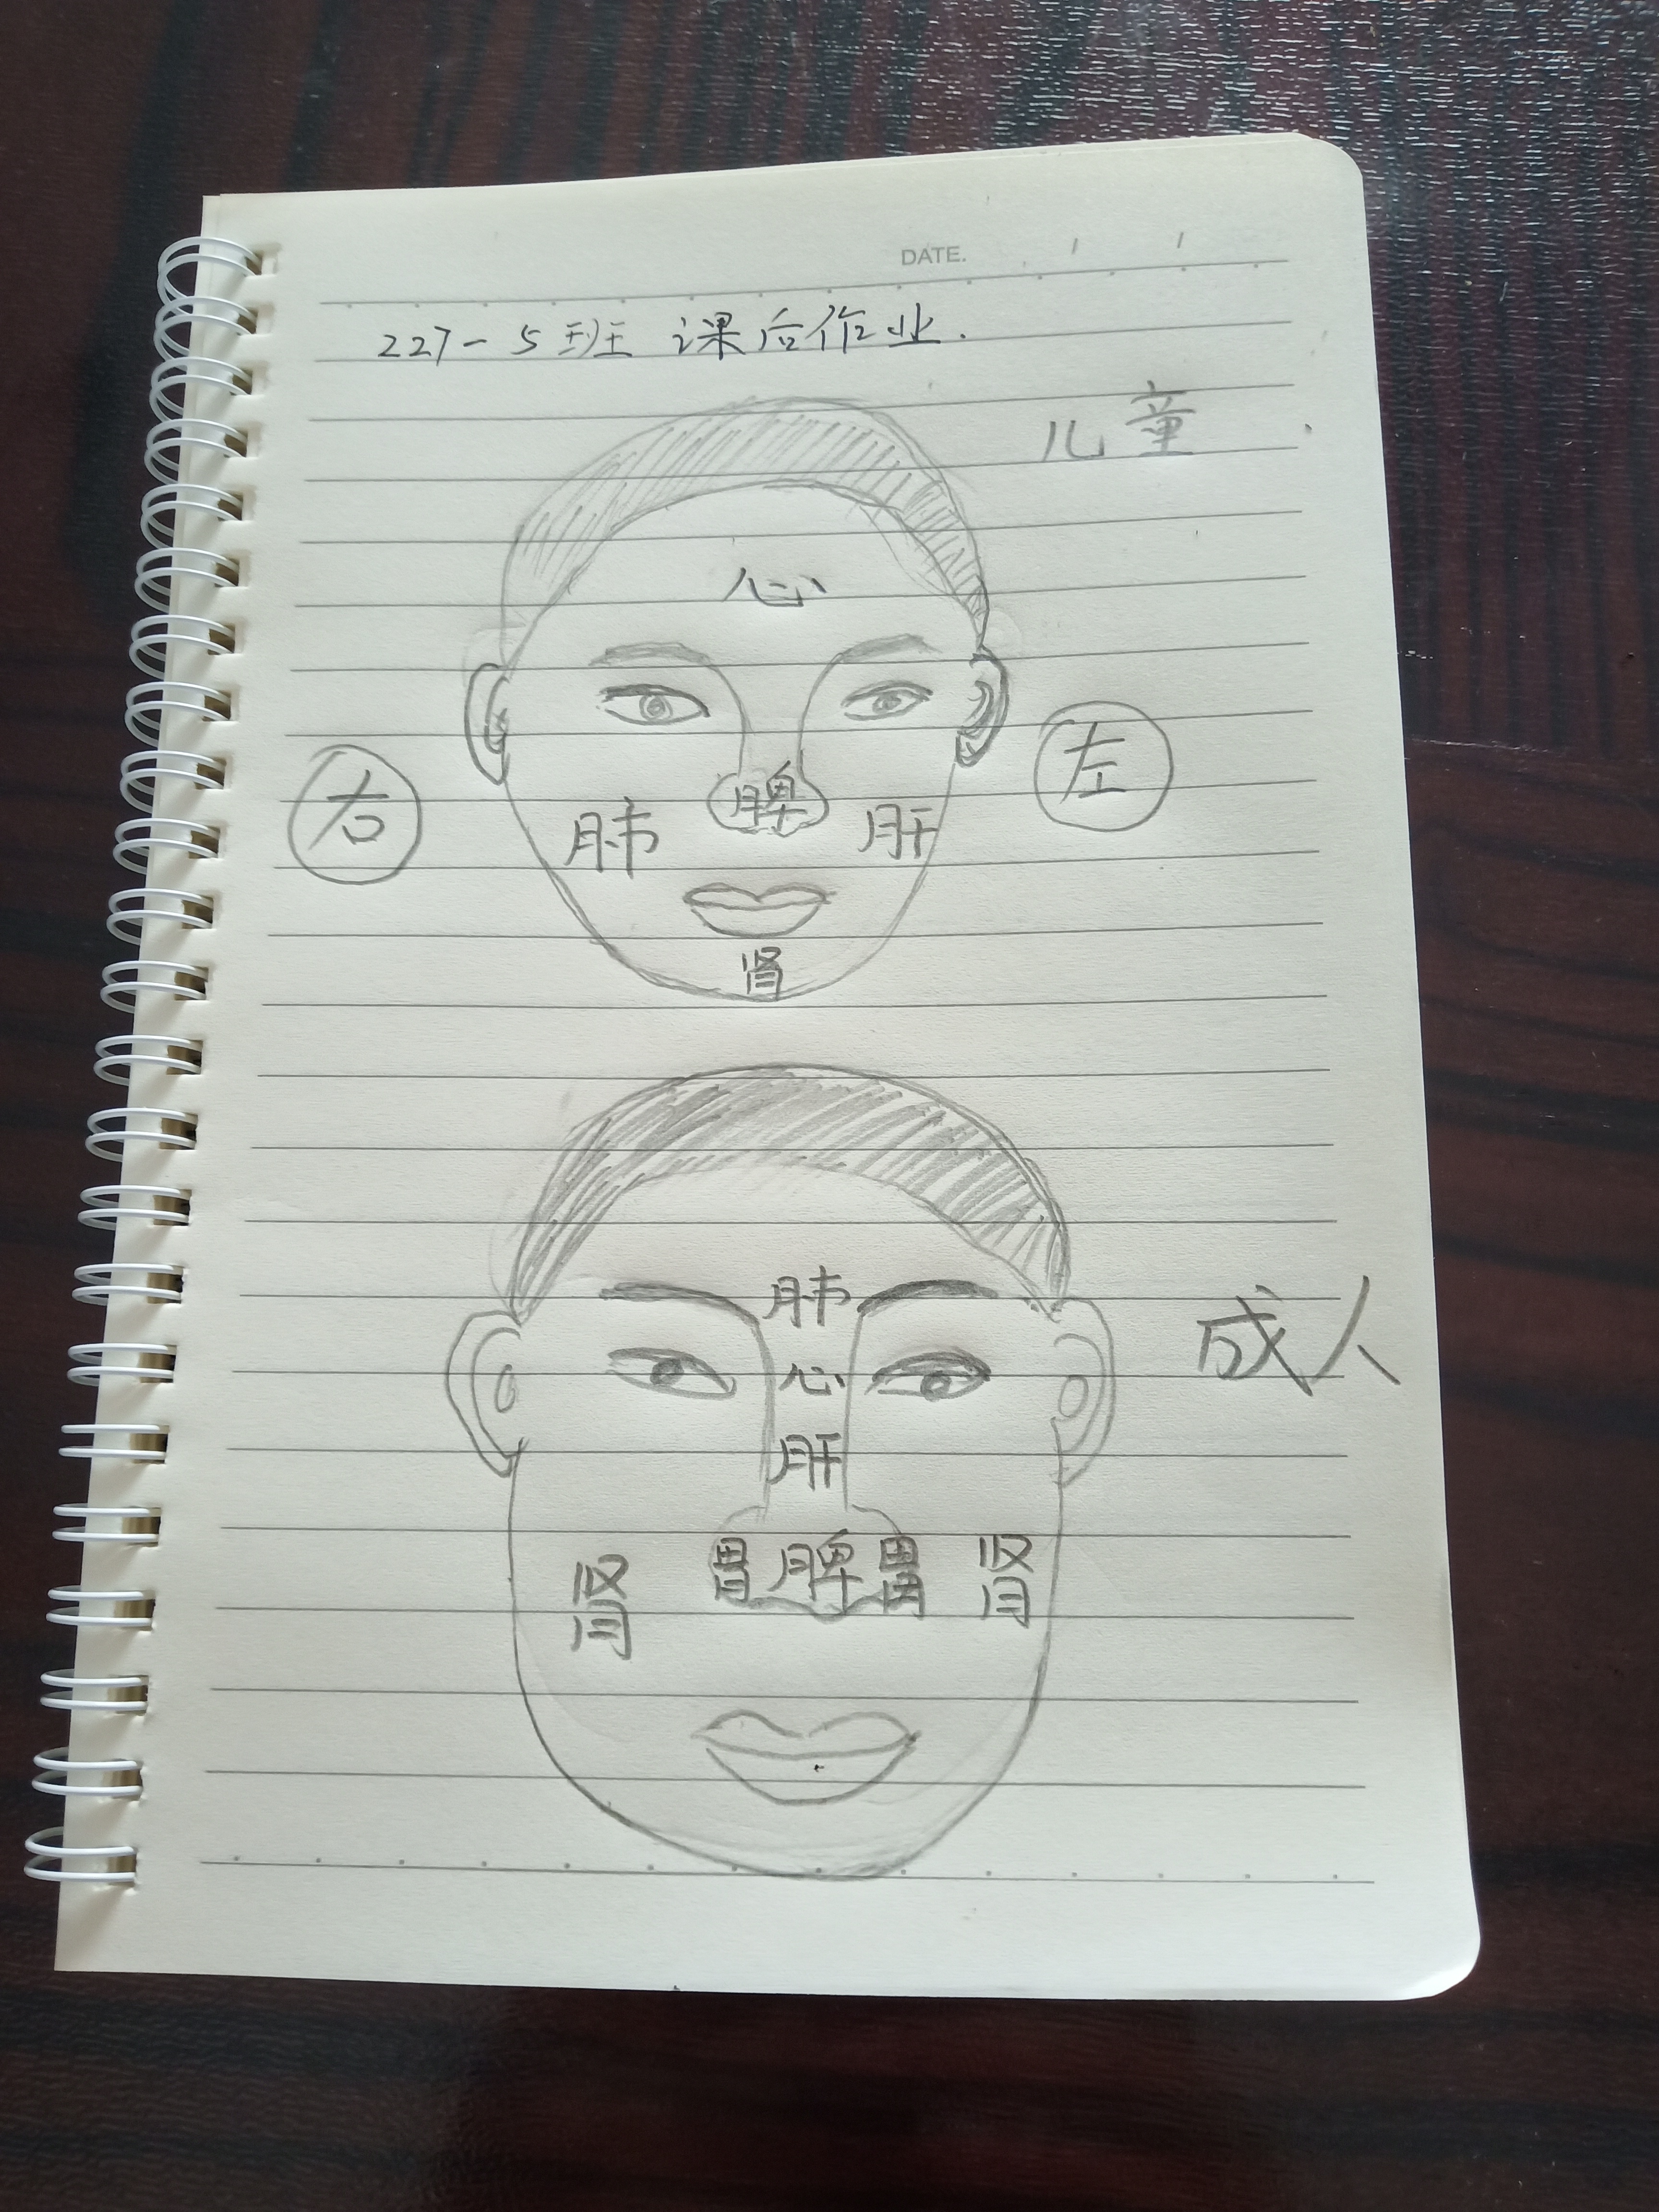 DATE. / /
227-5班 课后作业.
儿童
心
右 左
肺 脾 肝
肾
成人
肺
心
肝
肾 胃 脾 胃 肾